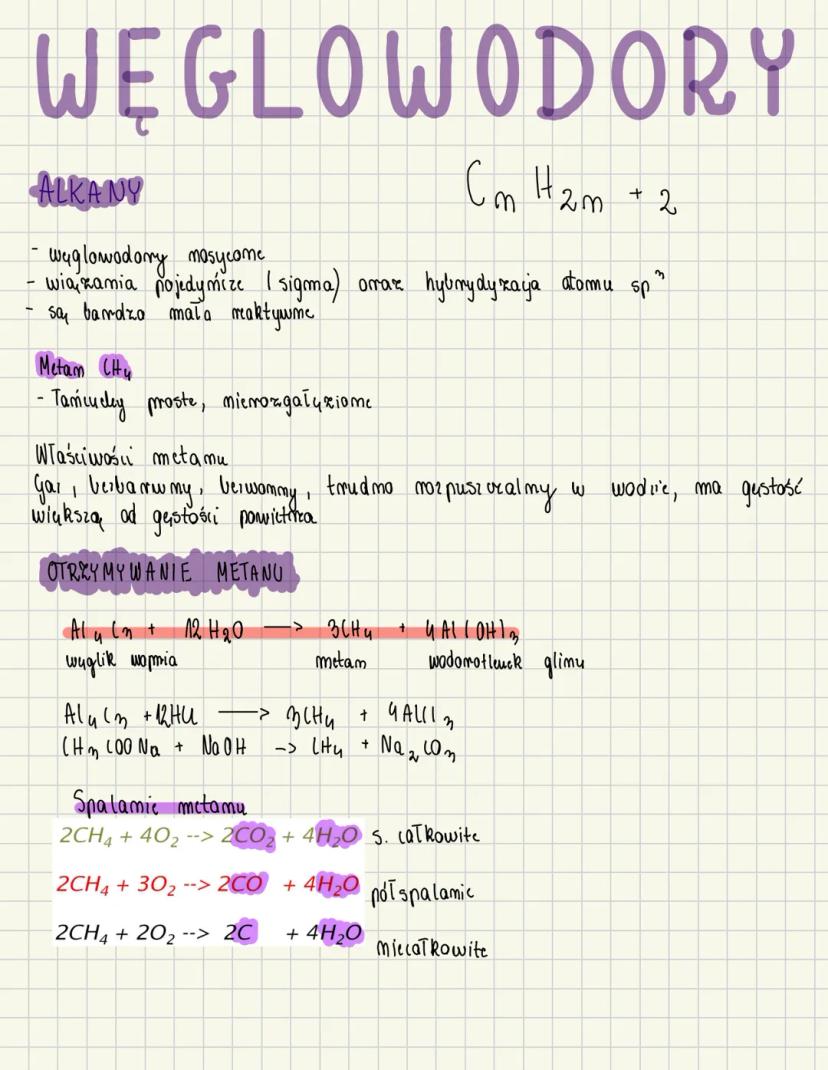 WĘGLOWODORY
ALKANY
CnH2n+2
- węglowodory nasycone
- wiązania pojedyńcze (sigma) oraz hybrydyzacja atomu sp³
- są bardzo mało reaktywne
Metan CH₄
- Łańcuchy proste, nierozgałęzione
Właściwości metanu
Gaz, bezbarwny, bezwonny, trudno rozpuszczalny w wodzie, ma gęstość
większą od gęstości powietrza
OTRZYMYWANIE METANU
Al₄C₃ + 12H₂O —> 3CH₄ + 4Al(OH)₃
węglik wapnia metan wodorotlenek glinu
Al₄C₃ + 12HCl —> 3CH₄ + 4AlCl₃
CH₃COONa + NaOH -> CH₄ + Na₂CO₃
Spalanie metanu
2CH₄ + 4O₂ --> 2CO₂ + 4H₂O s. całkowite
2CH₄ + 3O₂ --> 2CO + 4H₂O półspalanie
2CH₄ + 2O₂ --> 2C + 4H₂O niecałkowite